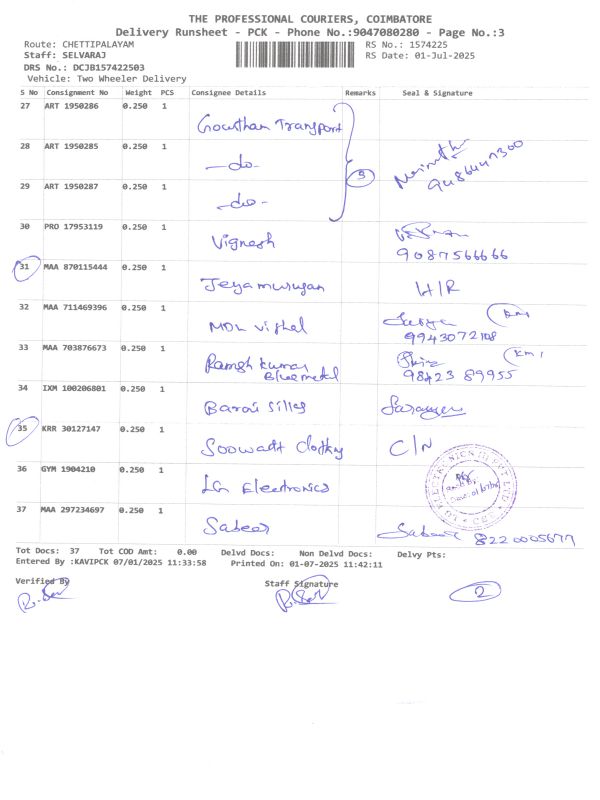 THE PROFESSIONAL COURIERS, COIMBATORE
Delivery Runsheet - PCK - Phone No.:9047080280 - Page No.:3
Route: CHETTIPALAYAM RS No.: 1574225
Staff: SELVARAJ RS Date: 01-Jul-2025
DRS No.: DCJB157422503
Vehicle: Two Wheeler Delivery
S No Consignment No Weight PCS Consignee Details Remarks Seal & Signature
27 ART 1950286 0.250 1 Gowthan Transport
28 ART 1950285 0.250 1 -do- 3
29 ART 1950287 0.250 1 -do-
30 PRO 17953119 0.250 1 Vignesh
9087566666
31 MAA 870115444 0.250 1 Jeyamurugan H/R
32 MAA 711469396 0.250 1 MDL Vishal
9943072108
33 MAA 703876673 0.250 1 Ramsh kumar
Bluemetal 98423 89955
34 IXM 100206801 0.250 1
35 KRR 30127147 0.250 1 C/N
36 GYM 1904210 0.250 1 LG Electronics
37 MAA 297234697 0.250 1 Sabeer 8220005677
Tot Docs: 37 Tot COD Amt: 0.00 Delvd Docs: Non Delvd Docs: Delvy Pts:
Entered By :KAVIPCK 07/01/2025 11:33:58 Printed On: 01-07-2025 11:42:11
Verified By Staff Signature
2